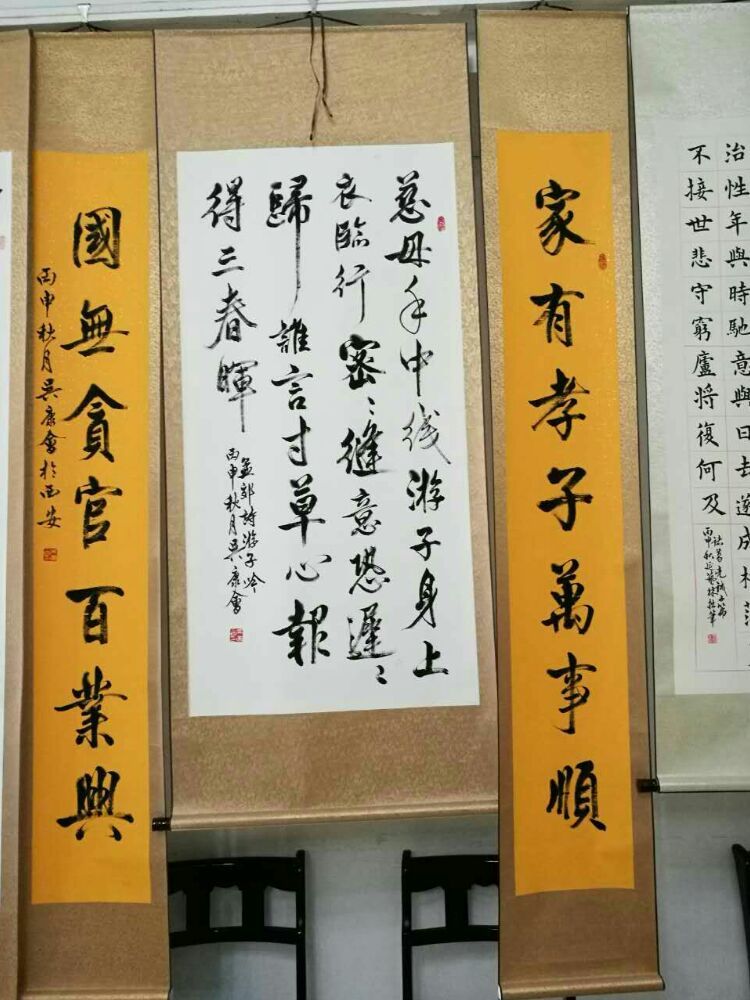 治性年與時馳意與日去遂成枯
不接世悲守窮廬將復何及
家有孝子萬事順
慈母手中线游子身上
衣臨行密〻縫意恐遲〻
歸誰言寸草心報
得三春暉
孟郊詩游子吟
丙申秋月吳康會
國無貪官百業興
丙申秋月吳康會於西安